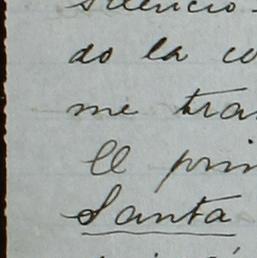 silencio
do la co
me tra
El prin
Santa